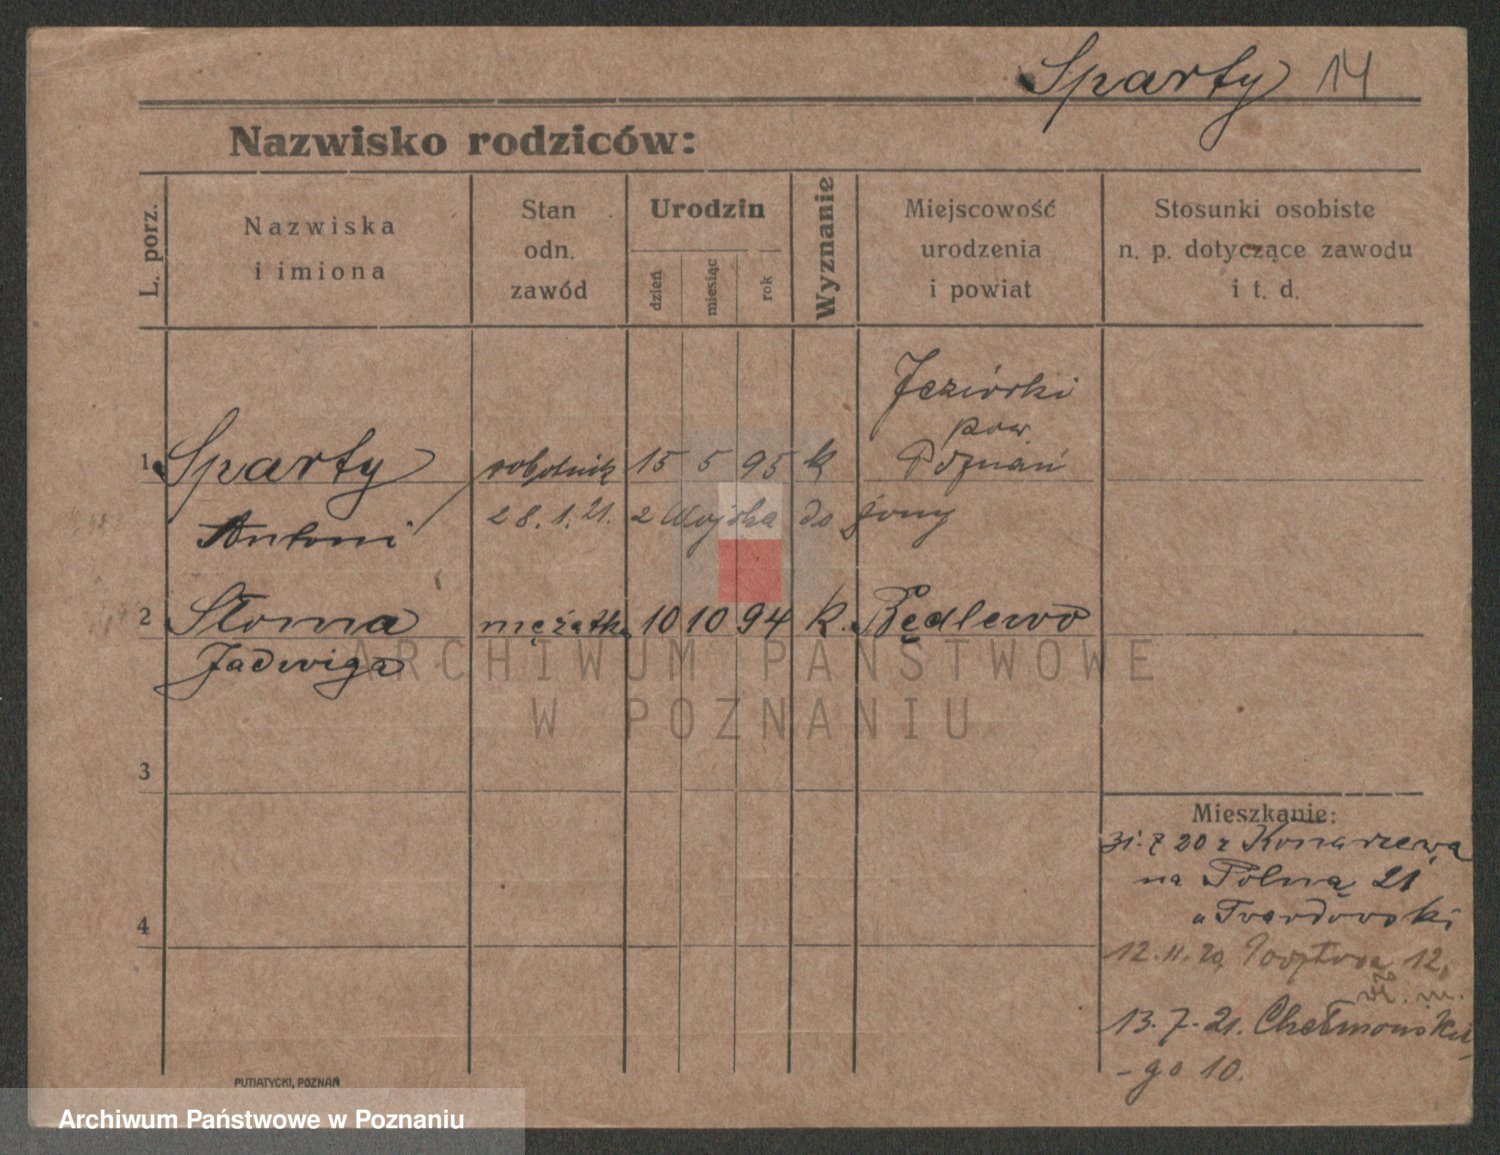 Sparty 14
Nazwisko rodziców:
L. porz.
Nazwiska
i imiona
Stan
odn.
zawód
Urodzin
dzień
miesiąc
rok
Wyznanie
Miejscowość
urodzenia
i powiat
Stosunki osobiste
n. p. dotyczące zawodu
i t. d.
Jeziórki
pow.
1 Sparty robotnik 15 5 95 k Poznań
Antoni 28. 1. 21. z Wojska do żony
2 Słoma mężatka 10 10 94 k. Będlewo
Jadwiga
ARCHIWUM PAŃSTWOWE
W POZNANIU
3
Mieszkanie:
31. 7 20 z Konarzewa
na Polną 21
u Twardowski
4
12. 11. 20 12.
13. 7. 21. Chełmońskie
-go 10.
PUTIATYCKI, POZNAŃ
Archiwum Państwowe w Poznaniu